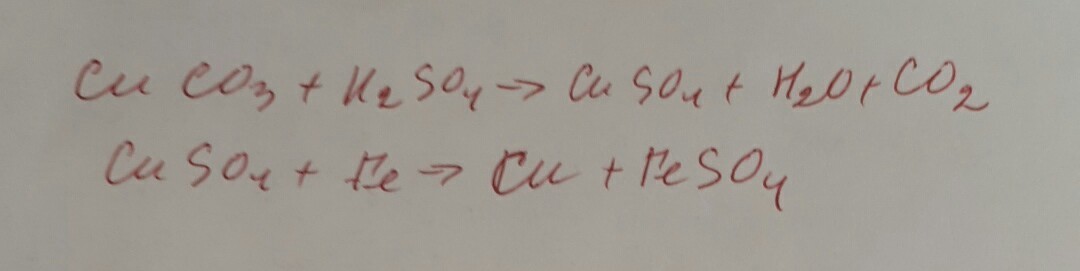 CuCO₃ + H₂SO₄ → CuSO₄ + H₂O + CO₂
CuSO₄ + Fe → Cu + FeSO₄